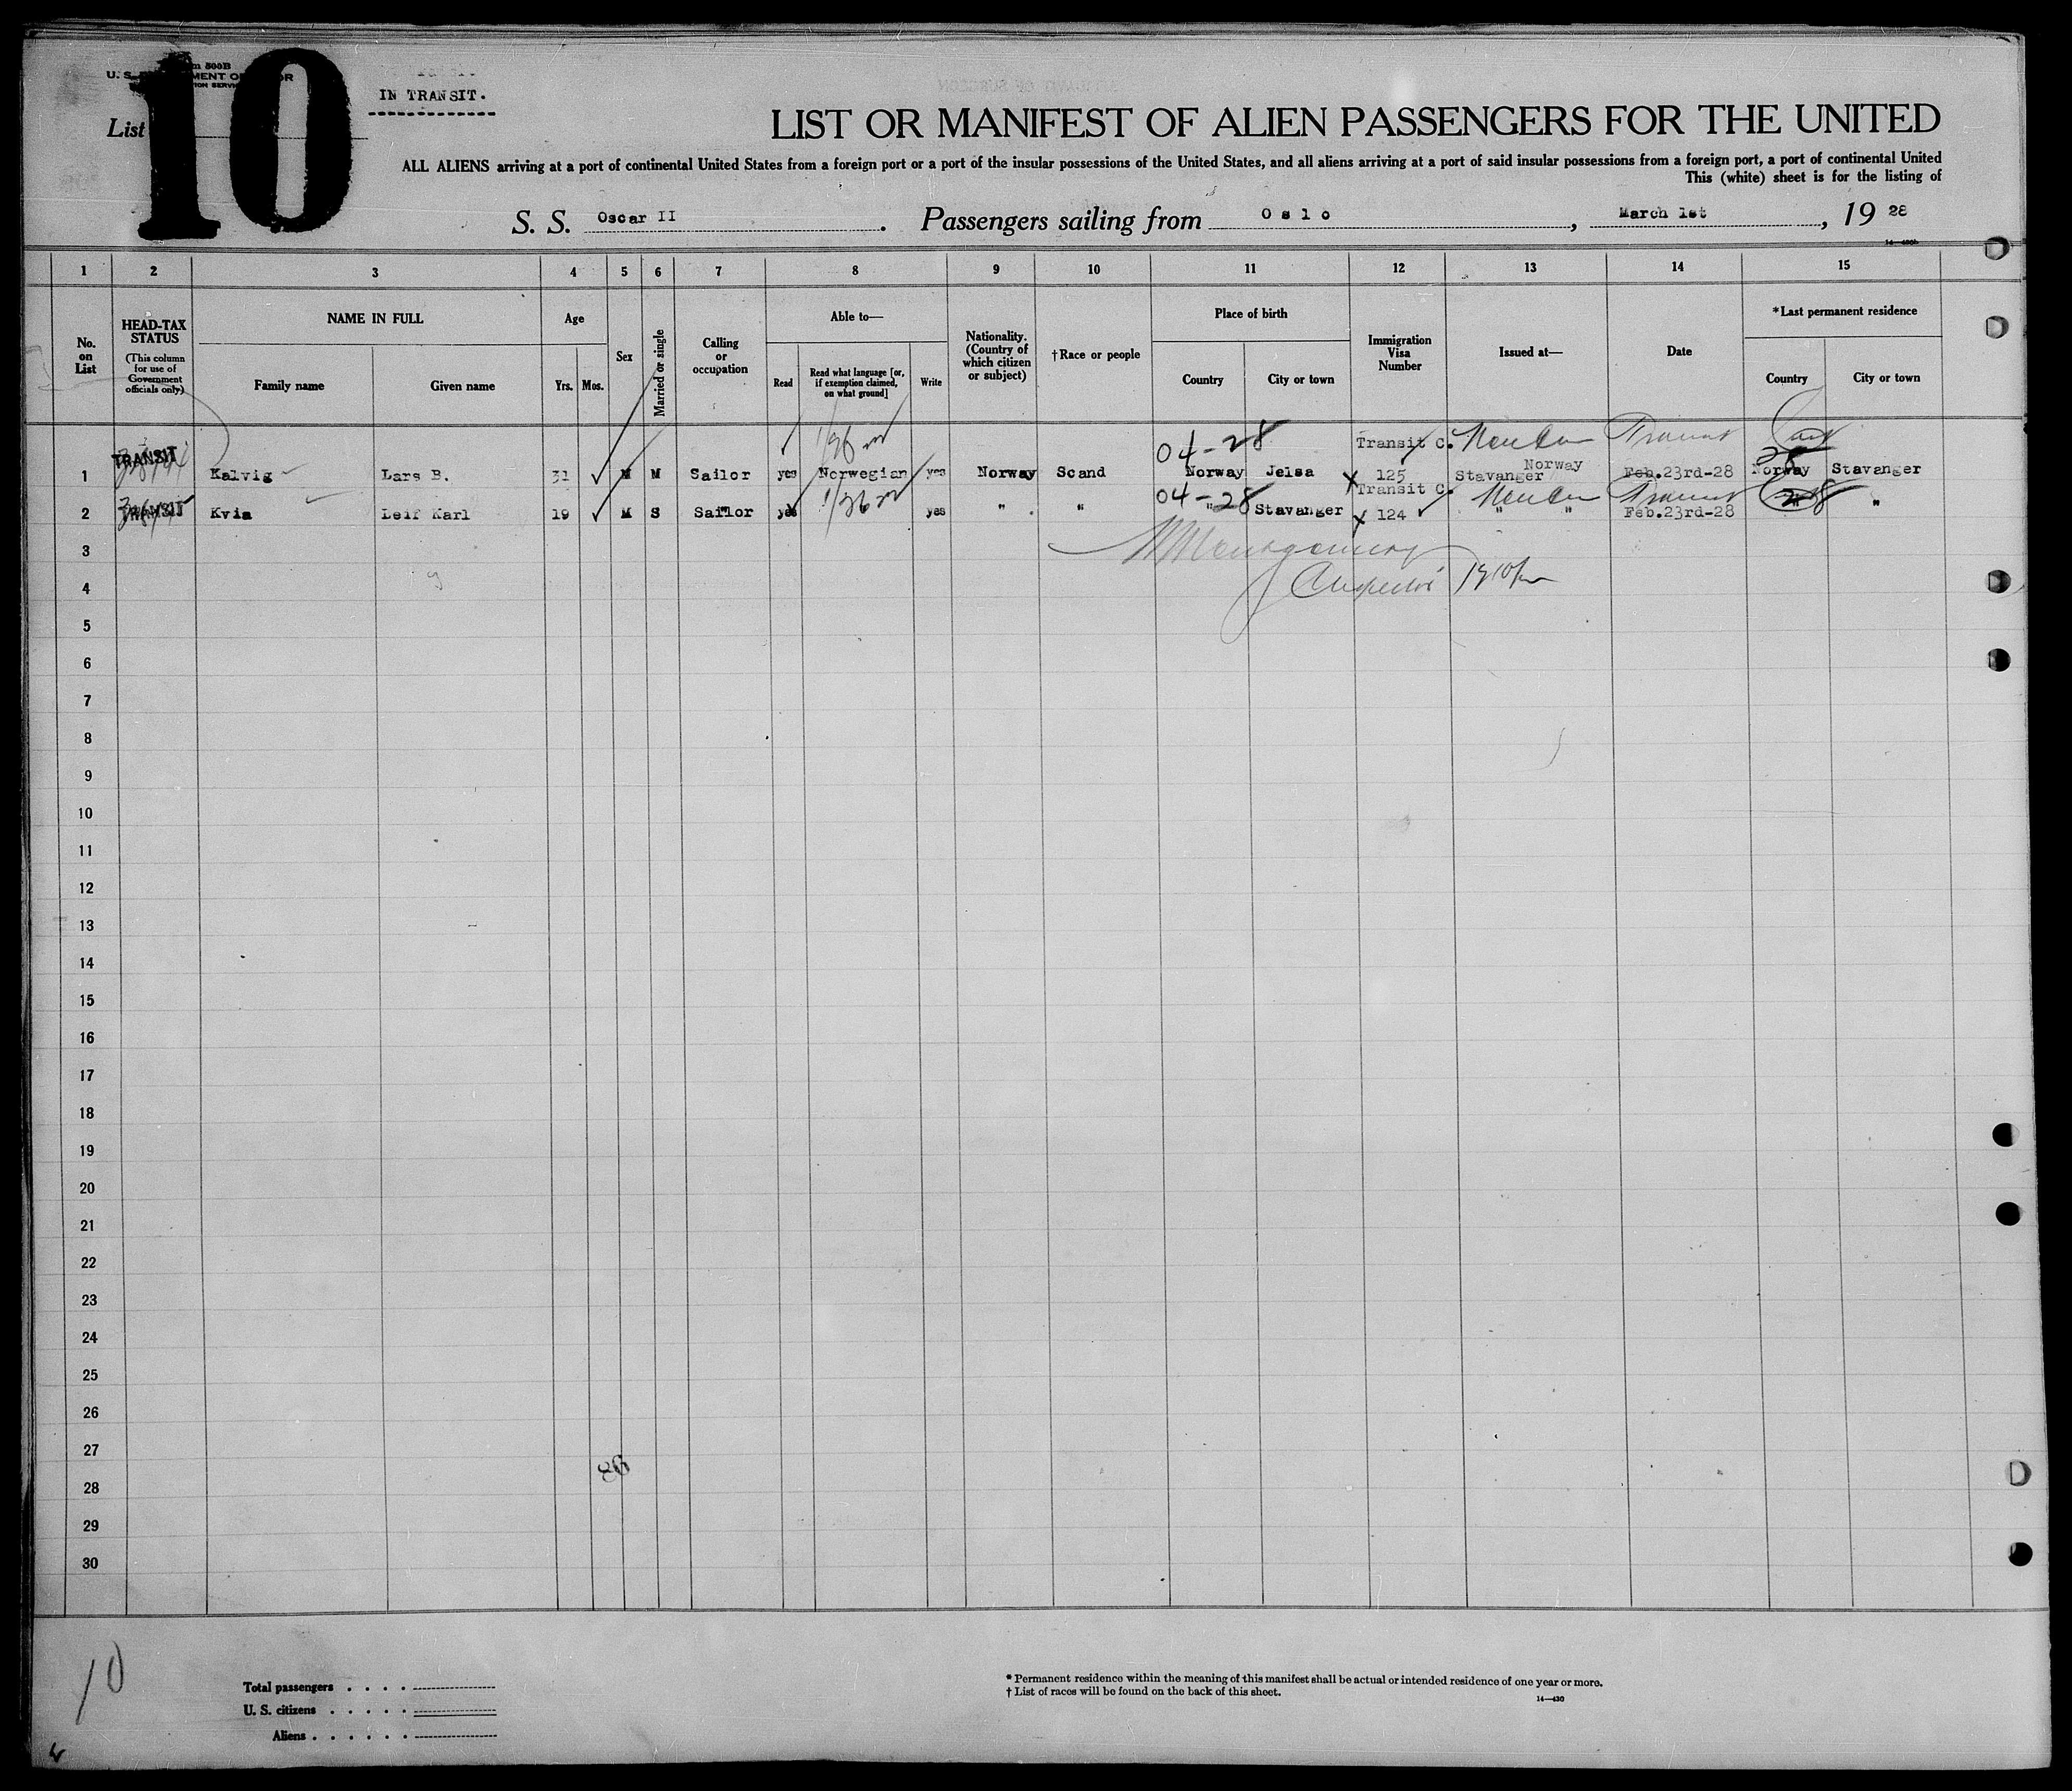 10
IN TRANSIT.
List
LIST OR MANIFEST OF ALIEN PASSENGERS FOR THE UNITED
ALL ALIENS arriving at a port of continental United States from a foreign port or a port of the insular possessions of the United States, and all aliens arriving at a port of said insular possessions from a foreign port, a port of continental United
This (white) sheet is for the listing of
S. S. Oscar II. Passengers sailing from Oslo, March 1st, 19 28
1 2 3 4 5 6 7 8 9 10 11 12 13 14 15
No. on List
HEAD-TAX STATUS
(This column for use of Government officials only)
NAME IN FULL
Family name
Given name
Age
Yrs. Mos.
Sex
Married or single
Calling or occupation
Able to—
Read
Read what language [or, if exemption claimed, on what ground]
Write
Nationality. (Country of which citizen or subject)
†Race or people
Place of birth
Country
City or town
Immigration Visa Number
Issued at—
Date
*Last permanent residence
Country
City or town
04-28 Transit C.
1 TRANSIT Kalvig Lars B. 31 M M Sailor yes Norwegian yes Norway Scand Norway Jelsa 125 Stavanger Norway Feb.23rd-28 Norway Stavanger
04-28 Transit C.
2 TRANSIT Kvia Leif Karl 19 M S Sailor yes yes " " " Stavanger 124 " " Feb.23rd-28 " "
3 Montgomery
4 Inspector
5
6
7
8
9
10
11
12
13
14
15
16
17
18
19
20
21
22
23
24
25
26
27
28
29
30
10
Total passengers
U. S. citizens
Aliens
* Permanent residence within the meaning of this manifest shall be actual or intended residence of one year or more.
† List of races will be found on the back of this sheet.
14—430